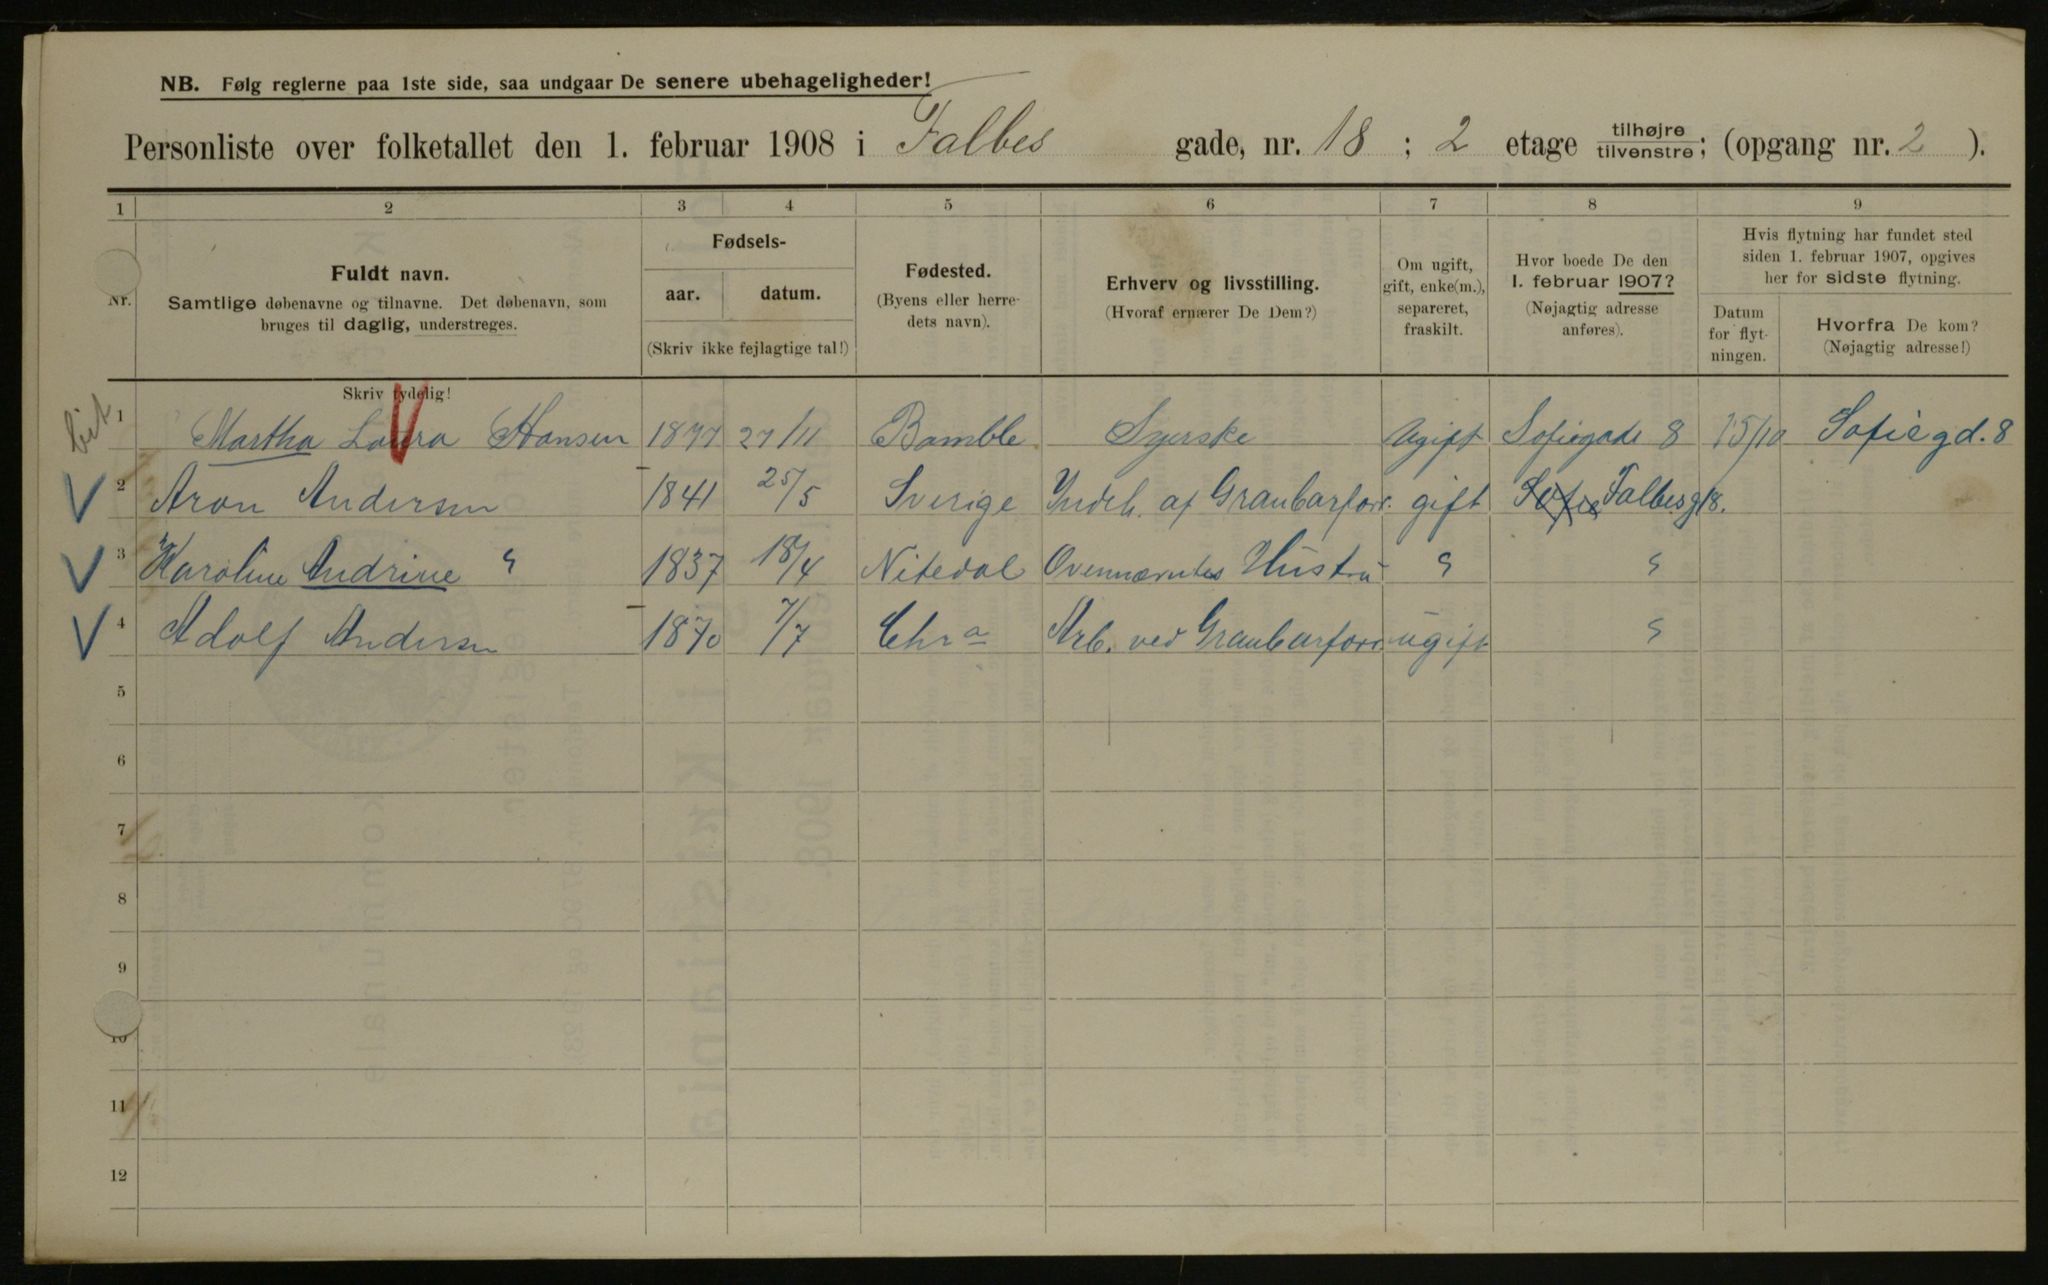 NB. Følg reglerne paa 1ste side, saa undgaar De senere ubehageligheder!
Personliste over folketallet den 1. februar 1908 i Falbes gade, nr. 18 ; 2 etage tilhøjre tilvenstre ; (opgang nr. 2 ).
1 2 3 4 5 6 7 8 9
Nr.
Fuldt navn.
Samtlige døbenavne og tilnavne. Det døbenavn, som
bruges til daglig, understreges.
Skriv tydelig!
Fødsels-
aar. datum.
(Skriv ikke fejlagtige tal!)
Fødested.
(Byens eller herre-
dets navn).
Erhverv og livsstilling.
(Hvoraf ernærer De Dem?)
Om ugift,
gift, enke(m.),
separeret,
fraskilt.
Hvor boede De den
1. februar 1907?
(Nøjagtig adresse
anføres).
Hvis flytning har fundet sted
siden 1. februar 1907, opgives
her for sidste flytning.
Datum
for flyt-
ningen.
Hvorfra De kom?
(Nøjagtig adresse!)
1 Martha Laura Hansen 1877 27/11 Bamble Syerske Ugift Sofiegade 8 15/10 Sofiegd. 8
2 Aron Andersen 1841 25/5 Sverige Indeh. af Graubarforr. gift Sofie Falbesg 18.
3 Karoline Andrine " 1837 18/4 Nitedal Ovennævntes Hustru " "
4 Adolf Andersen 1870 7/7 Chra Arb. ved Graubarforr. ugift "
5
6
7
8
9
10
11
12